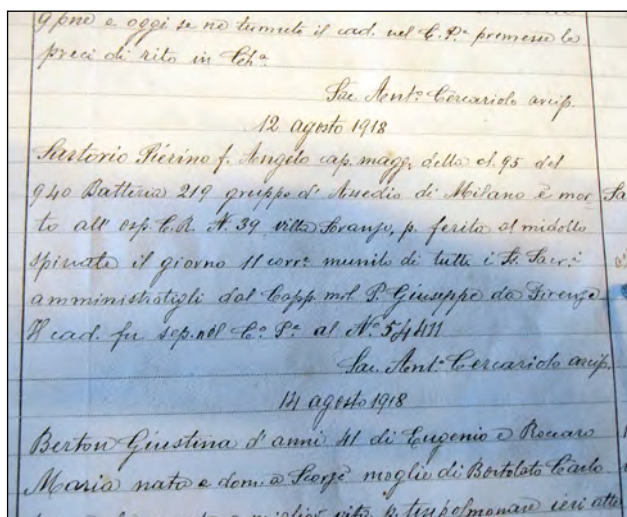 9 pne e oggi se ne tumutò il cad. nel C. P.º premesse le
preci di rito in Chª.
Sac. Antº Cercariolo arcip.
12 agosto 1918
Sartorio Pierino f. Angelo cap. magg. della cl. 95 del
940 Batteria 219 gruppo d'Assedio di Milano è mor-
to all' osp. C. R. N. 39 villa Soranzo, p. ferita al midollo
spinale il giorno 11 corrº munito di tutti i SS. Sacrⁱ
amministratigli dal Capp. mil. P. Giuseppe da Firenze
Il cad. fu sep. nel Cº Pº al Nº 54411
Sac. Antº Cercariolo arcip.
14 agosto 1918
Berton Giustina d'anni 41 di Eugenio e Roccaro
Maria nata e dom. a Scorzè moglie di Bortolato Carlo
miglior vita p. tisi polmonare ieri alle